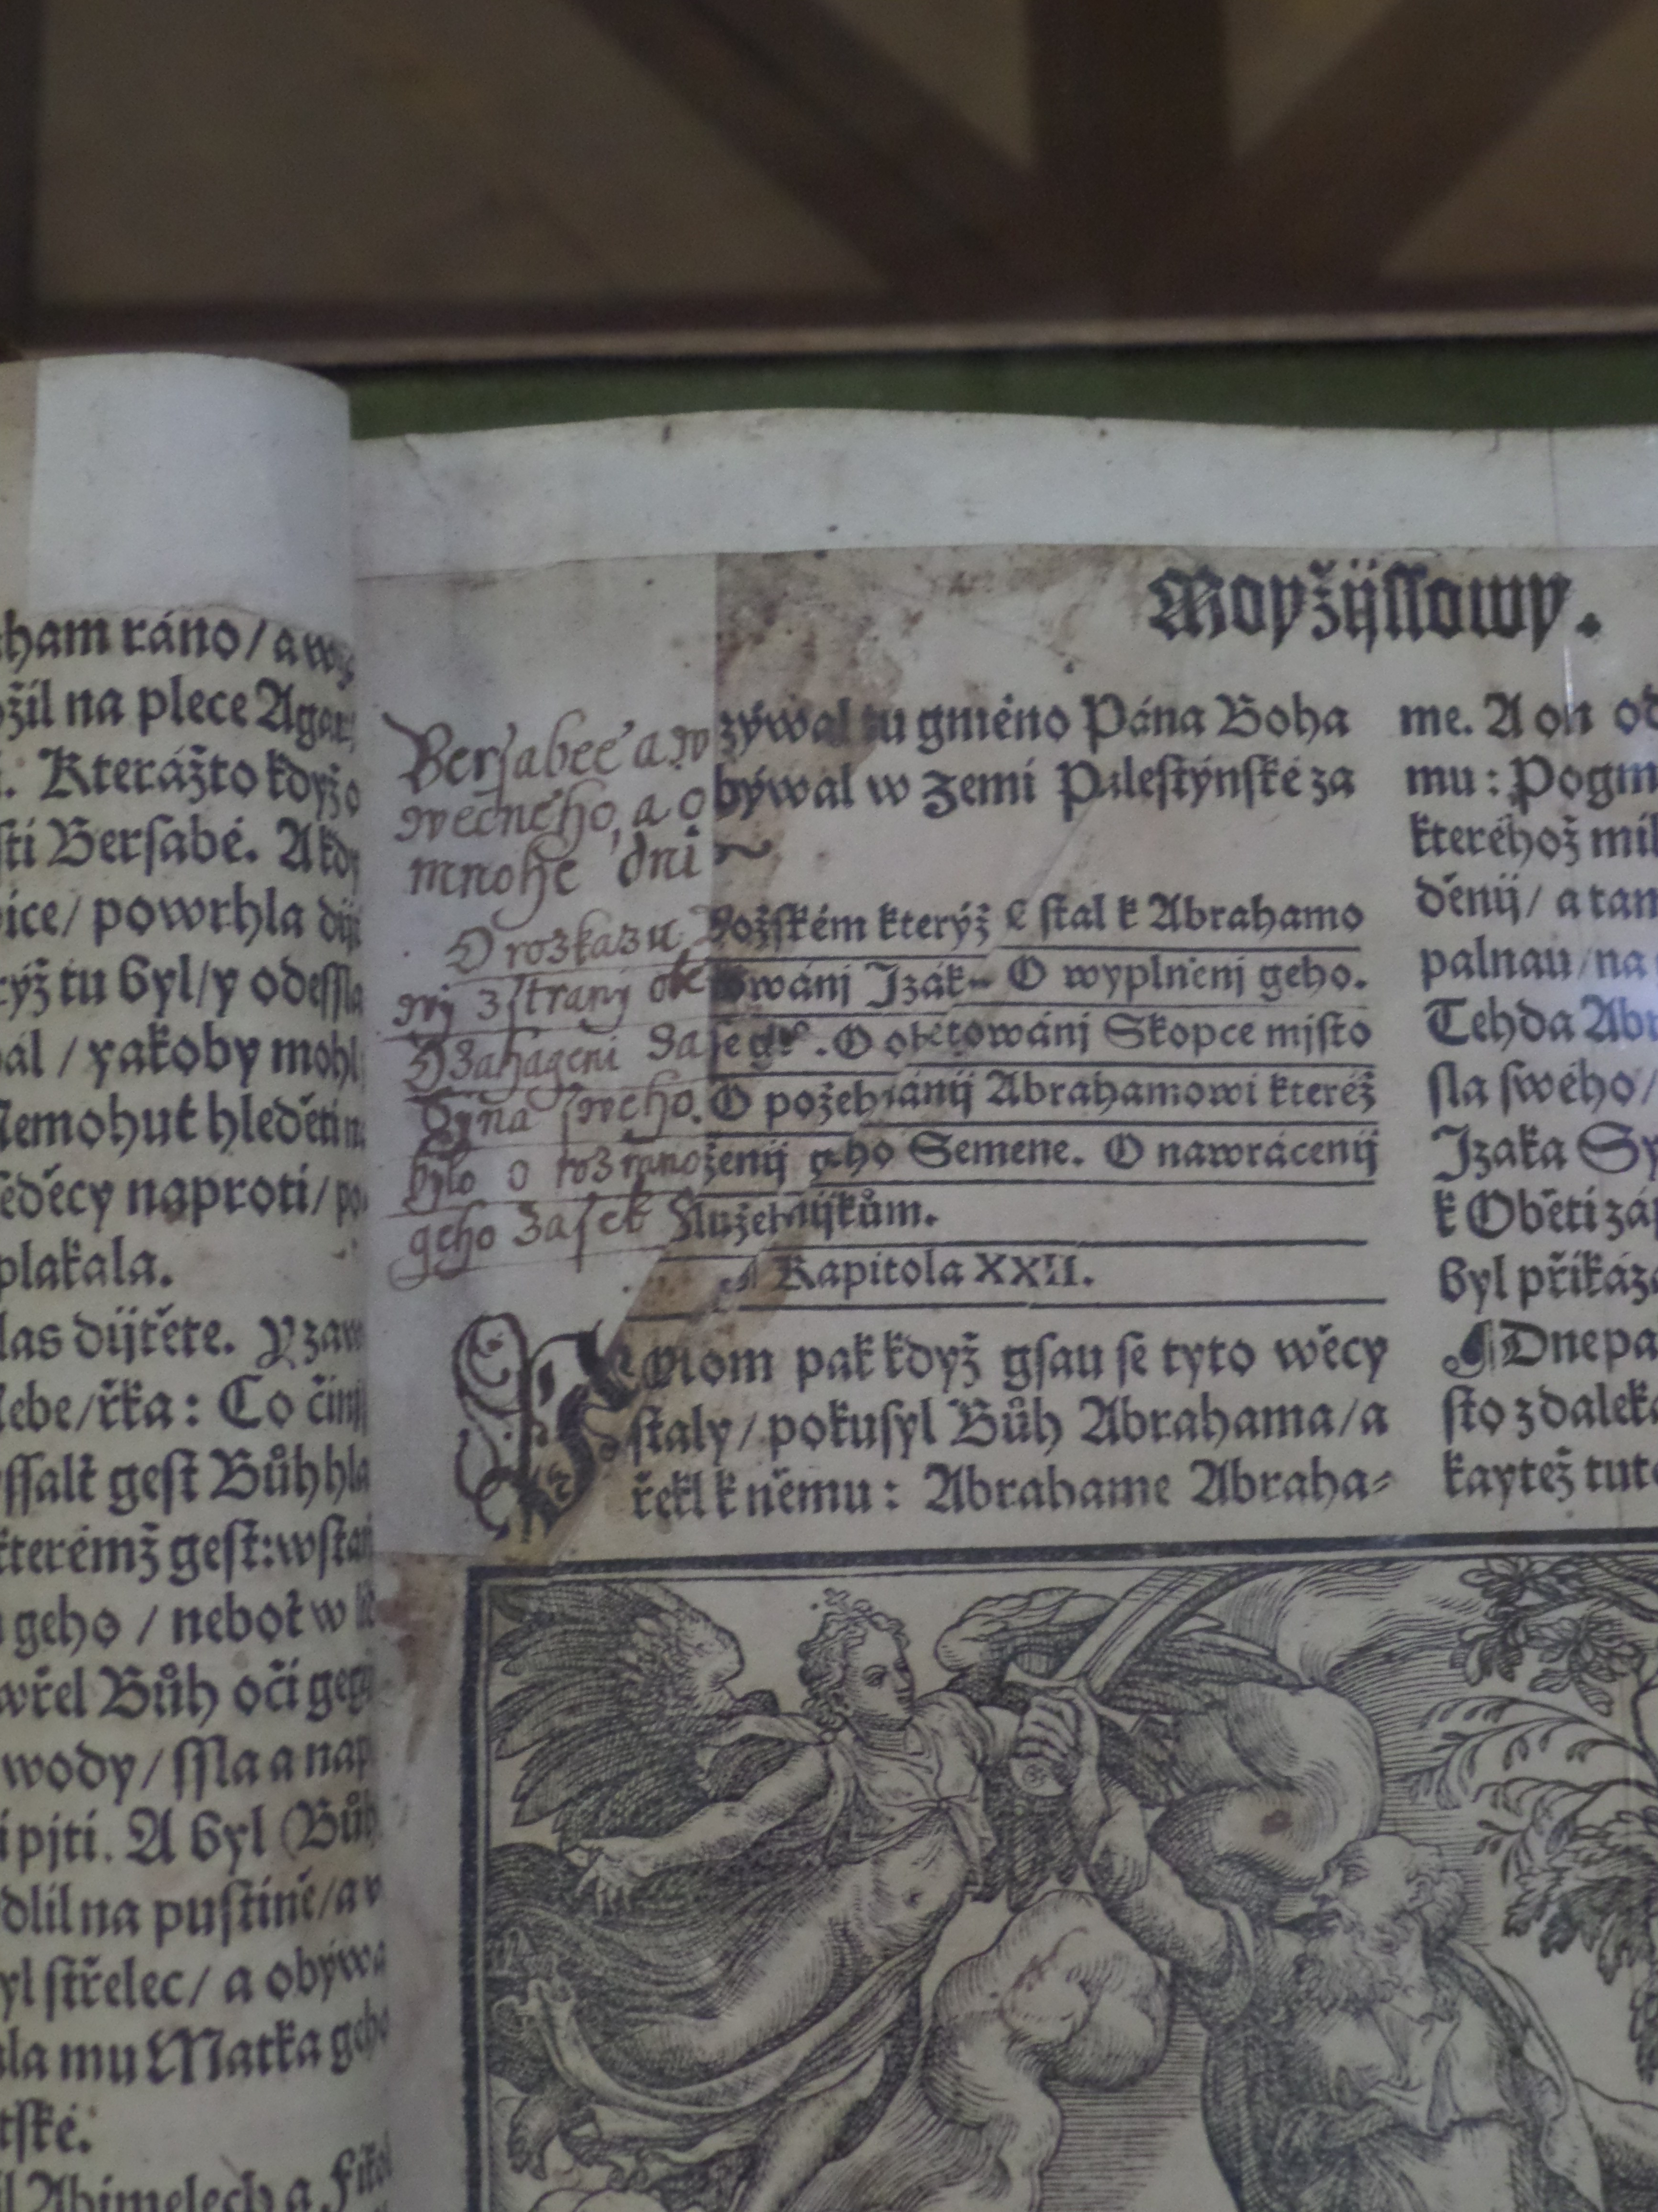 ham ráno / a
žil na plece Agar
Kterážto když o
sti Bersabé. A kdy
ice / powrhla dij
ryž tu byl / y odessla
al / yakoby mohl
Nemohuť hleděti
seděcy naproti / po
plakala.
las dijtěte. Y zaw
Nebe / řka : Co činij
yssalť gest Bůh hla
kterémž gest : wstaň
geho / neboť w
wřel Bůh oči gegij
wody / ssla a nap
pjti. A byl (Bůh
dlil na pustině / a
yl střelec / a obýwa
sla mu Matka geho
tské.
Abimelech a Fikol
Moyžijssowy.
Bersabeé a wzýwal tu gméno Pána Boha
wěčného, a obýwal w Zemi Palestýnské za
mnohé dni
O rozkazu Božském kterýž se stal k Abrahamo
wy z strany obětowánj Izáka. O wyplněnj geho.
O zahágeni zase gt°. O obětowánj Skopce mjsto
Syna swého. O požehnánij Abrahamowi kteréž
bylo o rozmnoženij geho Semene. O nawrácenij
geho zase k Služebnijkům.
Kapitola XXII.
POtom pak když gsau se tyto wěcy
staly / pokusyl Bůh Abrahama / a
řekl k němu : Abrahame Abraha⸗
me. A on od
mu : Pogm
kteréhož mil
děnij / a tam
palnau / na
Tehda Abr
sla swého /
Izáka Sy
k Oběti záp
byl přikáza
Dne pa
sto z daleka
kaytež tuto